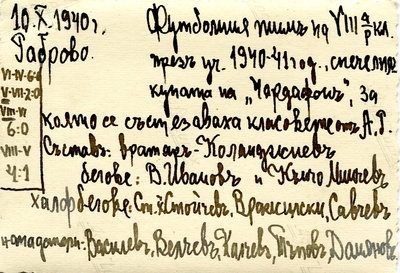 10.X.1940г.
Габрово.
VI-IV-6:0
V-VII-2:0
VIII-VI
6:0
VIII-V
4:1
Футболния тим на VIII а кл.
през уч. 1940-41 год., спечелил
купата на „Чардафон", за
която се състезаваха класовете от А.Г.
Съставъ: вратарь-Коланджиевъ
бегове: В.Ивановъ и Кънчо Минчевъ
халфбегове: Ст. Стойчевъ, Врансилски, Савчевъ
нападатели: Василевъ, Велчевъ, Калчевъ, Поповъ, Даяновъ